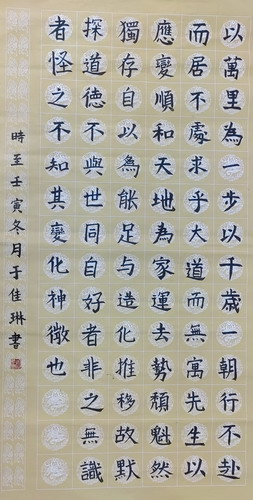 以萬里為一步以千歲一朝行不赴
而居不處求乎大道而無寓先生以
應變順和天地為家運去勢頹魁然
獨存自以為能足与造化推移故默
探道德不與世同自好者非之無識
者怪之不知其變化神微也
時至壬寅冬月于佳琳書